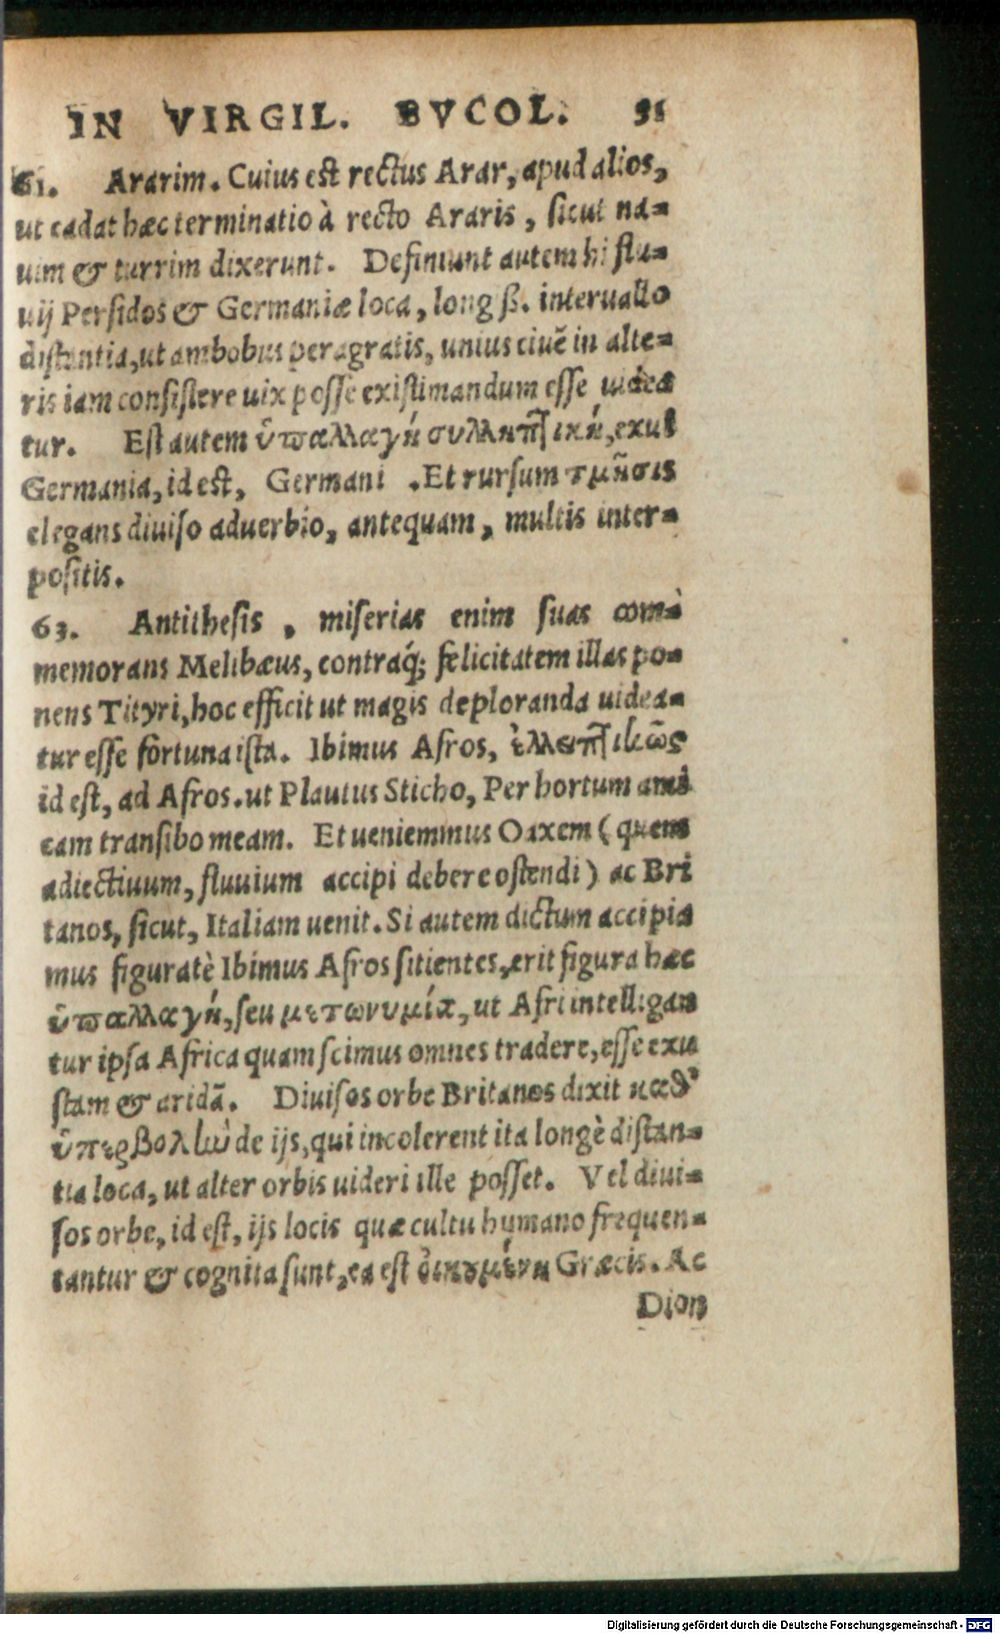 IN VIRGIL. BVCOL. 31
61. Ararim. Cuius est rectus Arar, apud alios,
ut cadat hæc terminatio à recto Araris, sicut na-
uim & turrim dixerunt. Definiunt autem hi flu-
uij Persidos & Germaniæ loca, long ß. interuallo
distantia, ut ambobus peragratis, unius ciuẽ in alte-
ris iam consistere uix posse existimandum esse uidea
tur. Est autem ὑπαλλαγὴ συλληπτικὴ, exul
Germania, id est, Germani. Et rursum τμῆσις
elegans diuiso aduerbio, antequam, multis inter-
positis.
63. Antithesis, miserias enim suas com-
memorans Melibæus, contraq́; felicitatem illas po-
nens Tityri, hoc efficit ut magis deploranda uidea-
tur esse fortuna ista. Ibimus Afros, ἐλλειπτικῶς
id est, ad Afros. ut Plautus Sticho, Per hortum ami
cam transibo meam. Et ueniemmus Oaxem (quem
adiectiuum, fluuium accipi debere ostendi) ac Bri
tanos, sicut, Italiam uenit. Si autem dictum accipia
mus figuratè Ibimus Afros sitientes, erit figura hæc
ὑπαλλαγὴ, seu μετωνυμία, ut Afri intelligan
tur ipsa Africa quam scimus omnes tradere, esse exu
stam & aridã. Diuisos orbe Britanos dixit καθ'
ὑπερβολὼ de ijs, qui incolerent ita longè distan-
tia loca, ut alter orbis uideri ille posset. Vel diui-
sos orbe, id est, ijs locis quæ cultu humano frequen-
tantur & cognita sunt, ea est οἰκουμένη Græcis. Ac
Dion
Digitalisierung gefördert durch die Deutsche Forschungsgemeinschaft - DFG